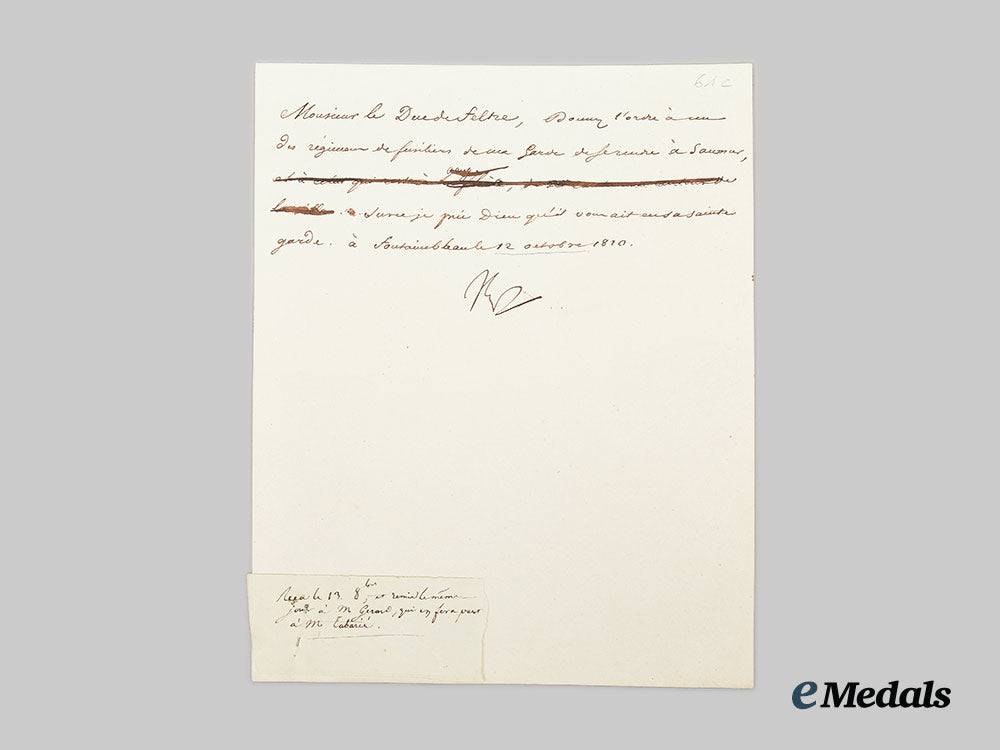 61 c
Monsieur le Duc de Feltre, Donnez l'ordre à un
des régimens de fusiliers de ma Garde de se rendre à Saumur,
et à celui qui
la ville. Sur ce je prie Dieu qu'il vous ait en sa sainte
garde. à Fontainebleau le 12 octobre 1810.
Np
Reçu le 13. 8bre, et remis le même
jour à M Gerard, qui en fera part
à Mr Tabarié.
eMedals